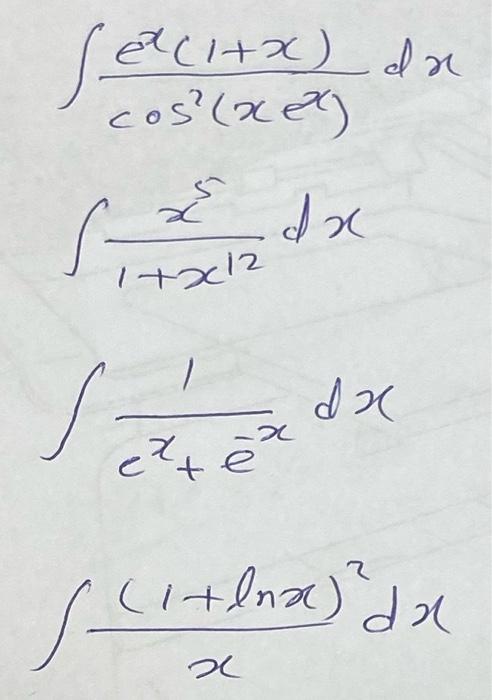 ∫ eˣ(1+x) / cos²(x eˣ) dx
∫ x⁵ / 1+x¹² dx
∫ 1 / eˣ + e⁻ˣ dx
∫ (1+lnx)² / x dx